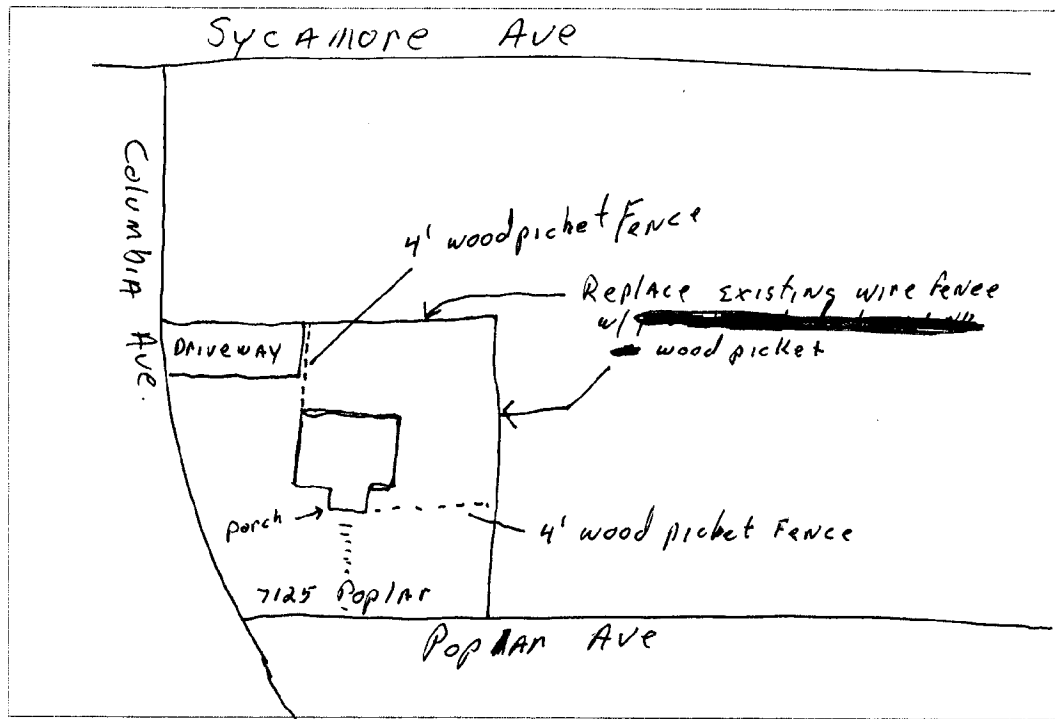 Sycamore Ave
Columbia Ave.
4' wood picket Fence
Replace existing wire fence
w/
wood picket
Driveway
porch
4' wood picket Fence
7125 Poplar
Poplar Ave